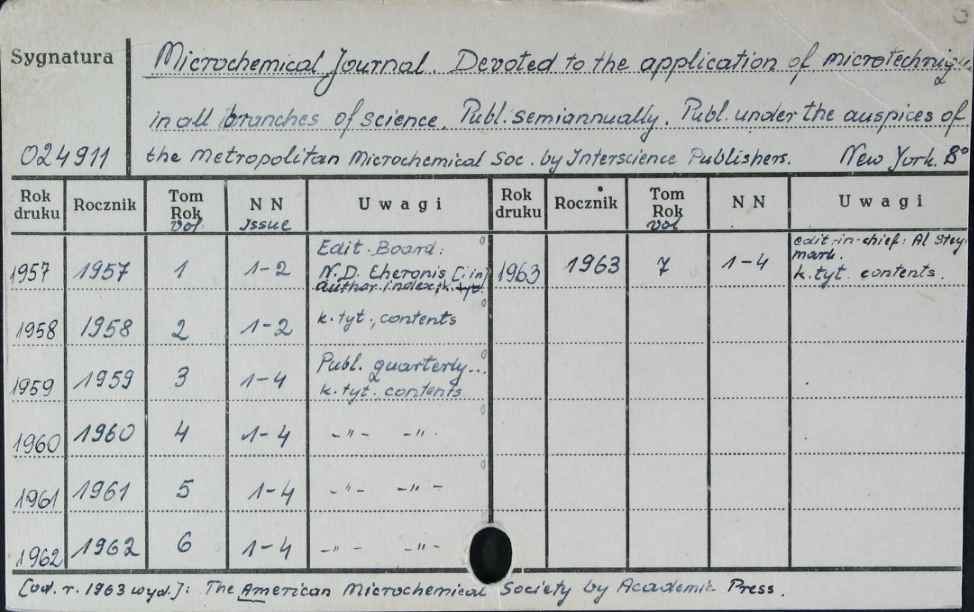 Sygnatura
Microchemical Journal. Devoted to the application of microtechniq
in all branches of science. Publ. semiannually. Publ. under the auspices of
024911 the Metropolitan Microchemical Soc. by Interscience Publishers. New York. 8°
Rok druku Rocznik Tom Rok Vol N N Issue Uwagi Rok druku Rocznik Tom Rok Vol N N Uwagi
1957 1957 1 1-2 Edit. Board: N.D. Cheronis [i in] author index, k. tyt 1963 1963 7 1-4 edit-in-chief: Al Steymark. k. tyt. contents.
1958 1958 2 1-2 k. tyt., contents
1959 1959 3 1-4 Publ. quarterly... k. tyt. contents
1960 1960 4 1-4 -"- -"-
1961 1961 5 1-4 -"- -"-
1962 1962 6 1-4 -"- -"-
[od. r. 1963 wyd.]: The American Microchemical Society by Academic Press.